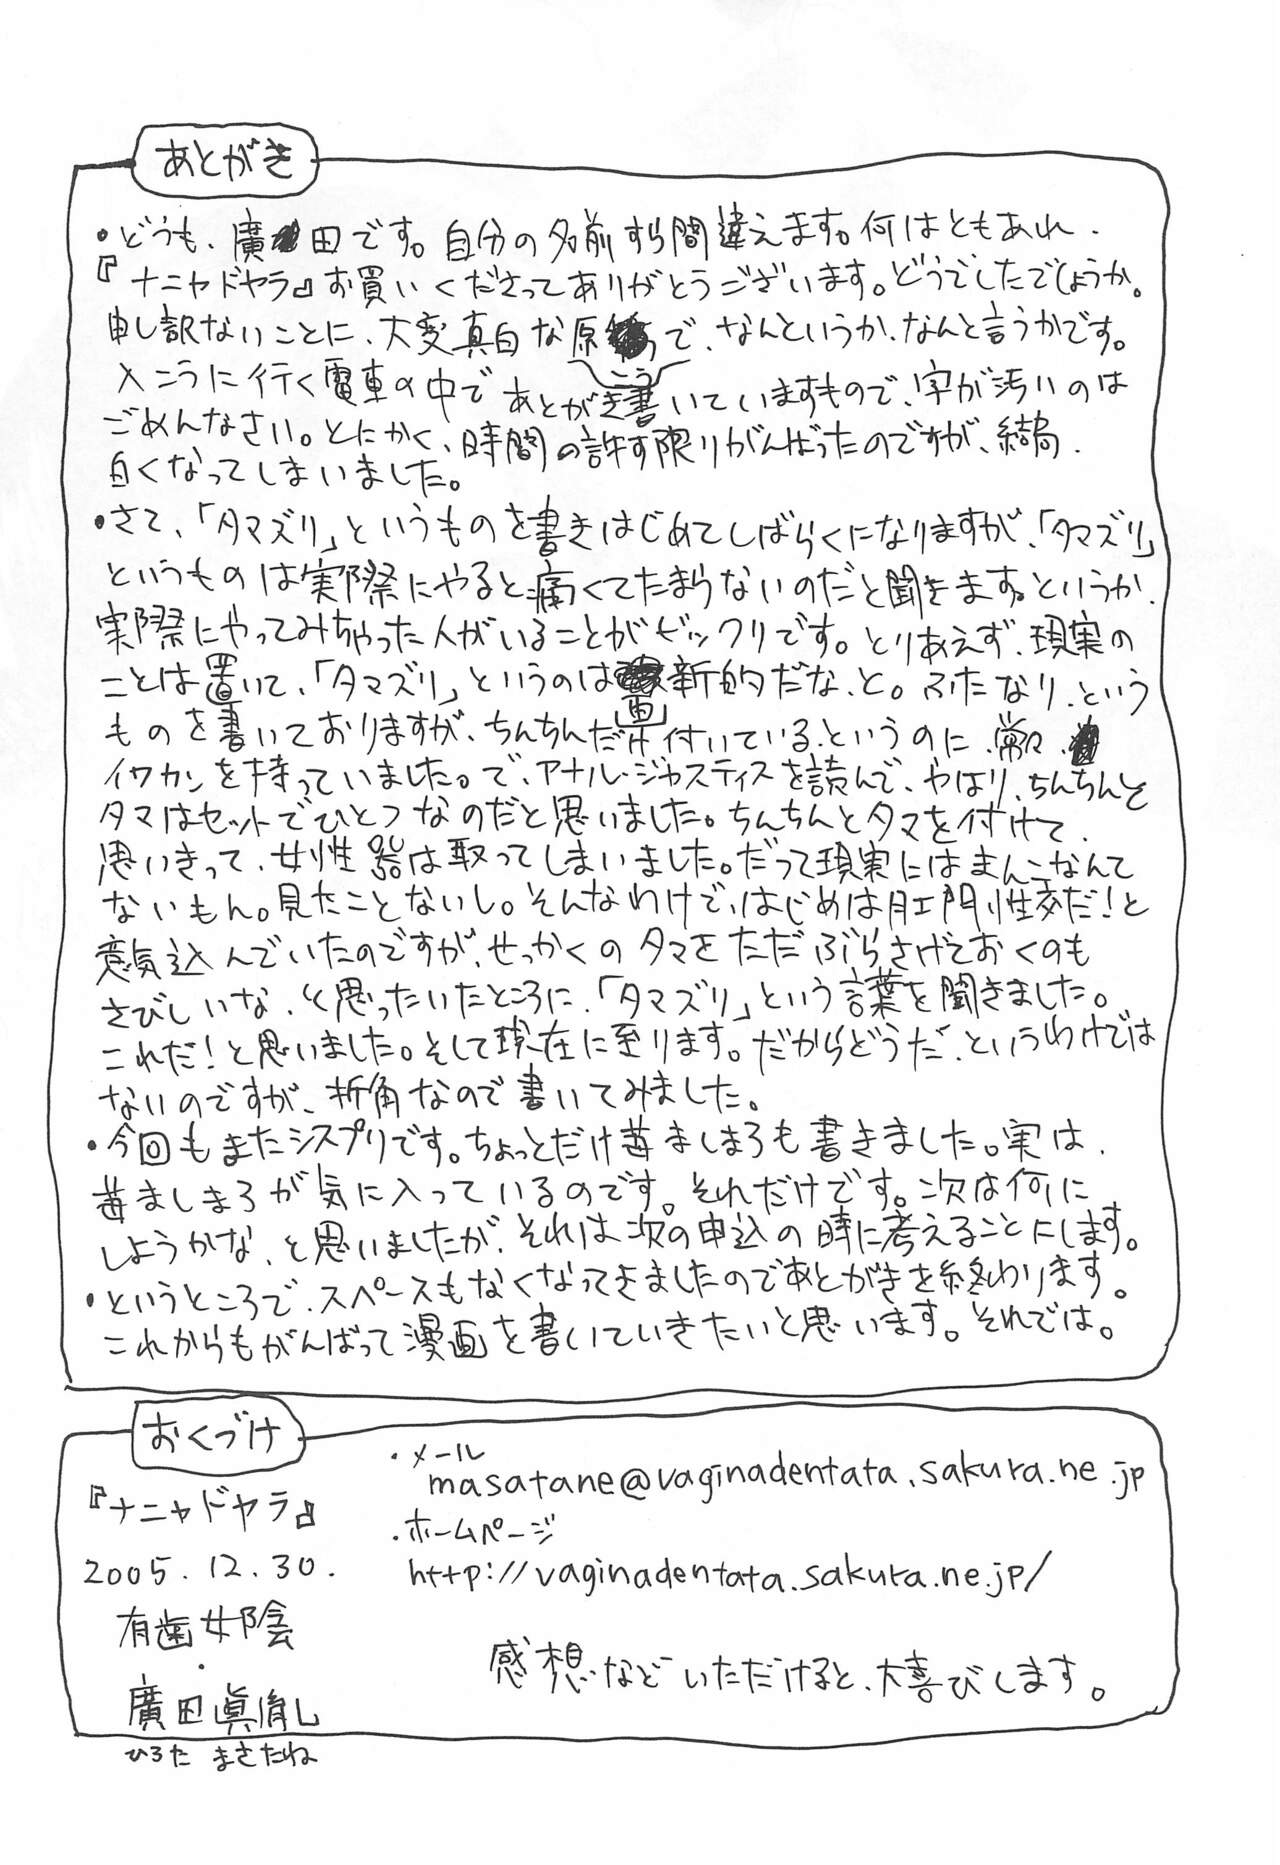 あとがき
・どうも、廣田です。自分の名前すら間違えます。何はともあれ、
『ナニャドヤラ』お買いくださってありがとうございます。どうでしたでしょうか。
申し訳ないことに、大変真白な原こうで、なんというか、なんと言うかです。
入こうに行く電車の中であとがき書いていますもので、字が汚いのは
ごめんなさい。とにかく、時間の許す限りがんばったのですが、結局、
白くなってしまいました。
・さて、「タマズリ」というものを書きはじめてしばらくになりますが、「タマズリ」
というものは実際にやると痛くてたまらないのだと聞きます。というか、
実際にやってみちゃった人がいることがビックリです。とりあえず、現実の
ことは置いて、「タマズリ」というのは画新的だな、と。ふたなり、という
ものを書いておりますが、ちんちんだけ付いている、というのに、常々、
イワカンを持っていました。で、アナル・ジャスティスを読んで、やはり、ちんちんと
タマはセットでひとつなのだと思いました。ちんちんとタマを付けて、
思いきって、女性器は取ってしまいました。だって現実にはまんこなんて
ないもん。見たことないし。そんなわけで、はじめは肛門性交だ!と
意気込んでいたのですが、せっかくのタマをただぶらさげておくのも
さびしいな、と思ったいたところに、「タマズリ」という言葉を聞きました。
これだ!と思いました。そして現在に至ります。だからどうだ、というわけでは
ないのですが、折角なので書いてみました。
・今回もまたシスプリです。ちょっとだけ苺ましまろも書きました。実は、
苺ましまろが気に入っているのです。それだけです。次は何に
しようかな、と思いましたが、それは次の申込の時に考えることにします。
・というところで、スペースもなくなってきましたのであとがきを終わります。
これからもがんばって漫画を書いていきたいと思います。それでは。
おくづけ
『ナニャドヤラ』
2005.12.30.
有歯女陰
・
廣田眞胤
ひろた まさたね
・メール
masatane@vaginadentata.sakura.ne.jp
・ホームページ
http://vaginadentata.sakura.ne.jp/
感想などいただけると、大喜びします。